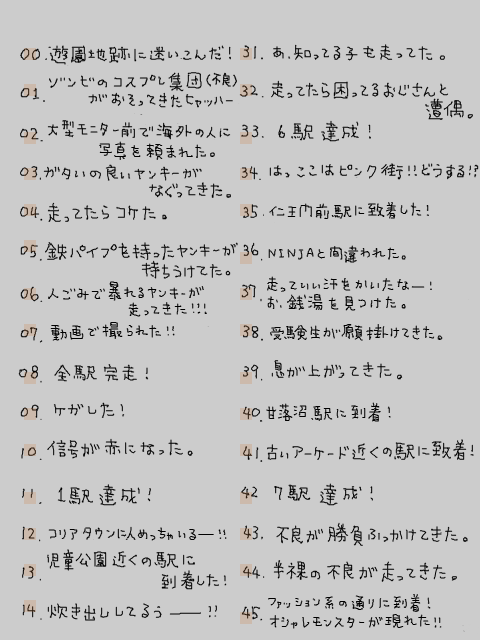 00. 遊園地跡に迷いこんだ!
01. ゾンビのコスプレ集団(不良)
がおそってきたヒャッハー
02. 大型モニター前で海外の人に
写真を頼まれた。
03. ガタいの良いヤンキーが
なぐってきた。
04. 走ってたらコケた。
05. 鉄パイプを持ったヤンキーが
持ちうけてた。
06. 人ごみで暴れるヤンキーが
走ってきた!!!
07. 動画で撮られた!!
08. 全駅完走!
09. ケガした!
10. 信号が赤になった。
11. 1駅達成!
12. コリアタウンに人めっちゃいるー!!
13. 児童公園近くの駅に
到着した!
14. 炊き出ししてるぅ——!!
31. あ、知ってる子も走ってた。
32. 走ってたら困ってるおじさんと
遭遇。
33. 6駅達成!
34. はっここはピンク街!!どうする!?
35. 仁王門前駅に到着した!
36. NINJAと間違われた。
37. 走っていい汗をかいたなー!
お、銭湯を見つけた。
38. 受験生が願掛けてきた。
39. 息が上がってきた。
40. 甘落沼駅に到着!
41. 古いアーケード近くの駅に到着!
42 7駅達成!
43. 不良が勝負ふっかけてきた。
44. 半裸の不良が走ってきた。
45. ファッション系の通りに到着!
オシャレモンスターが現れた!!